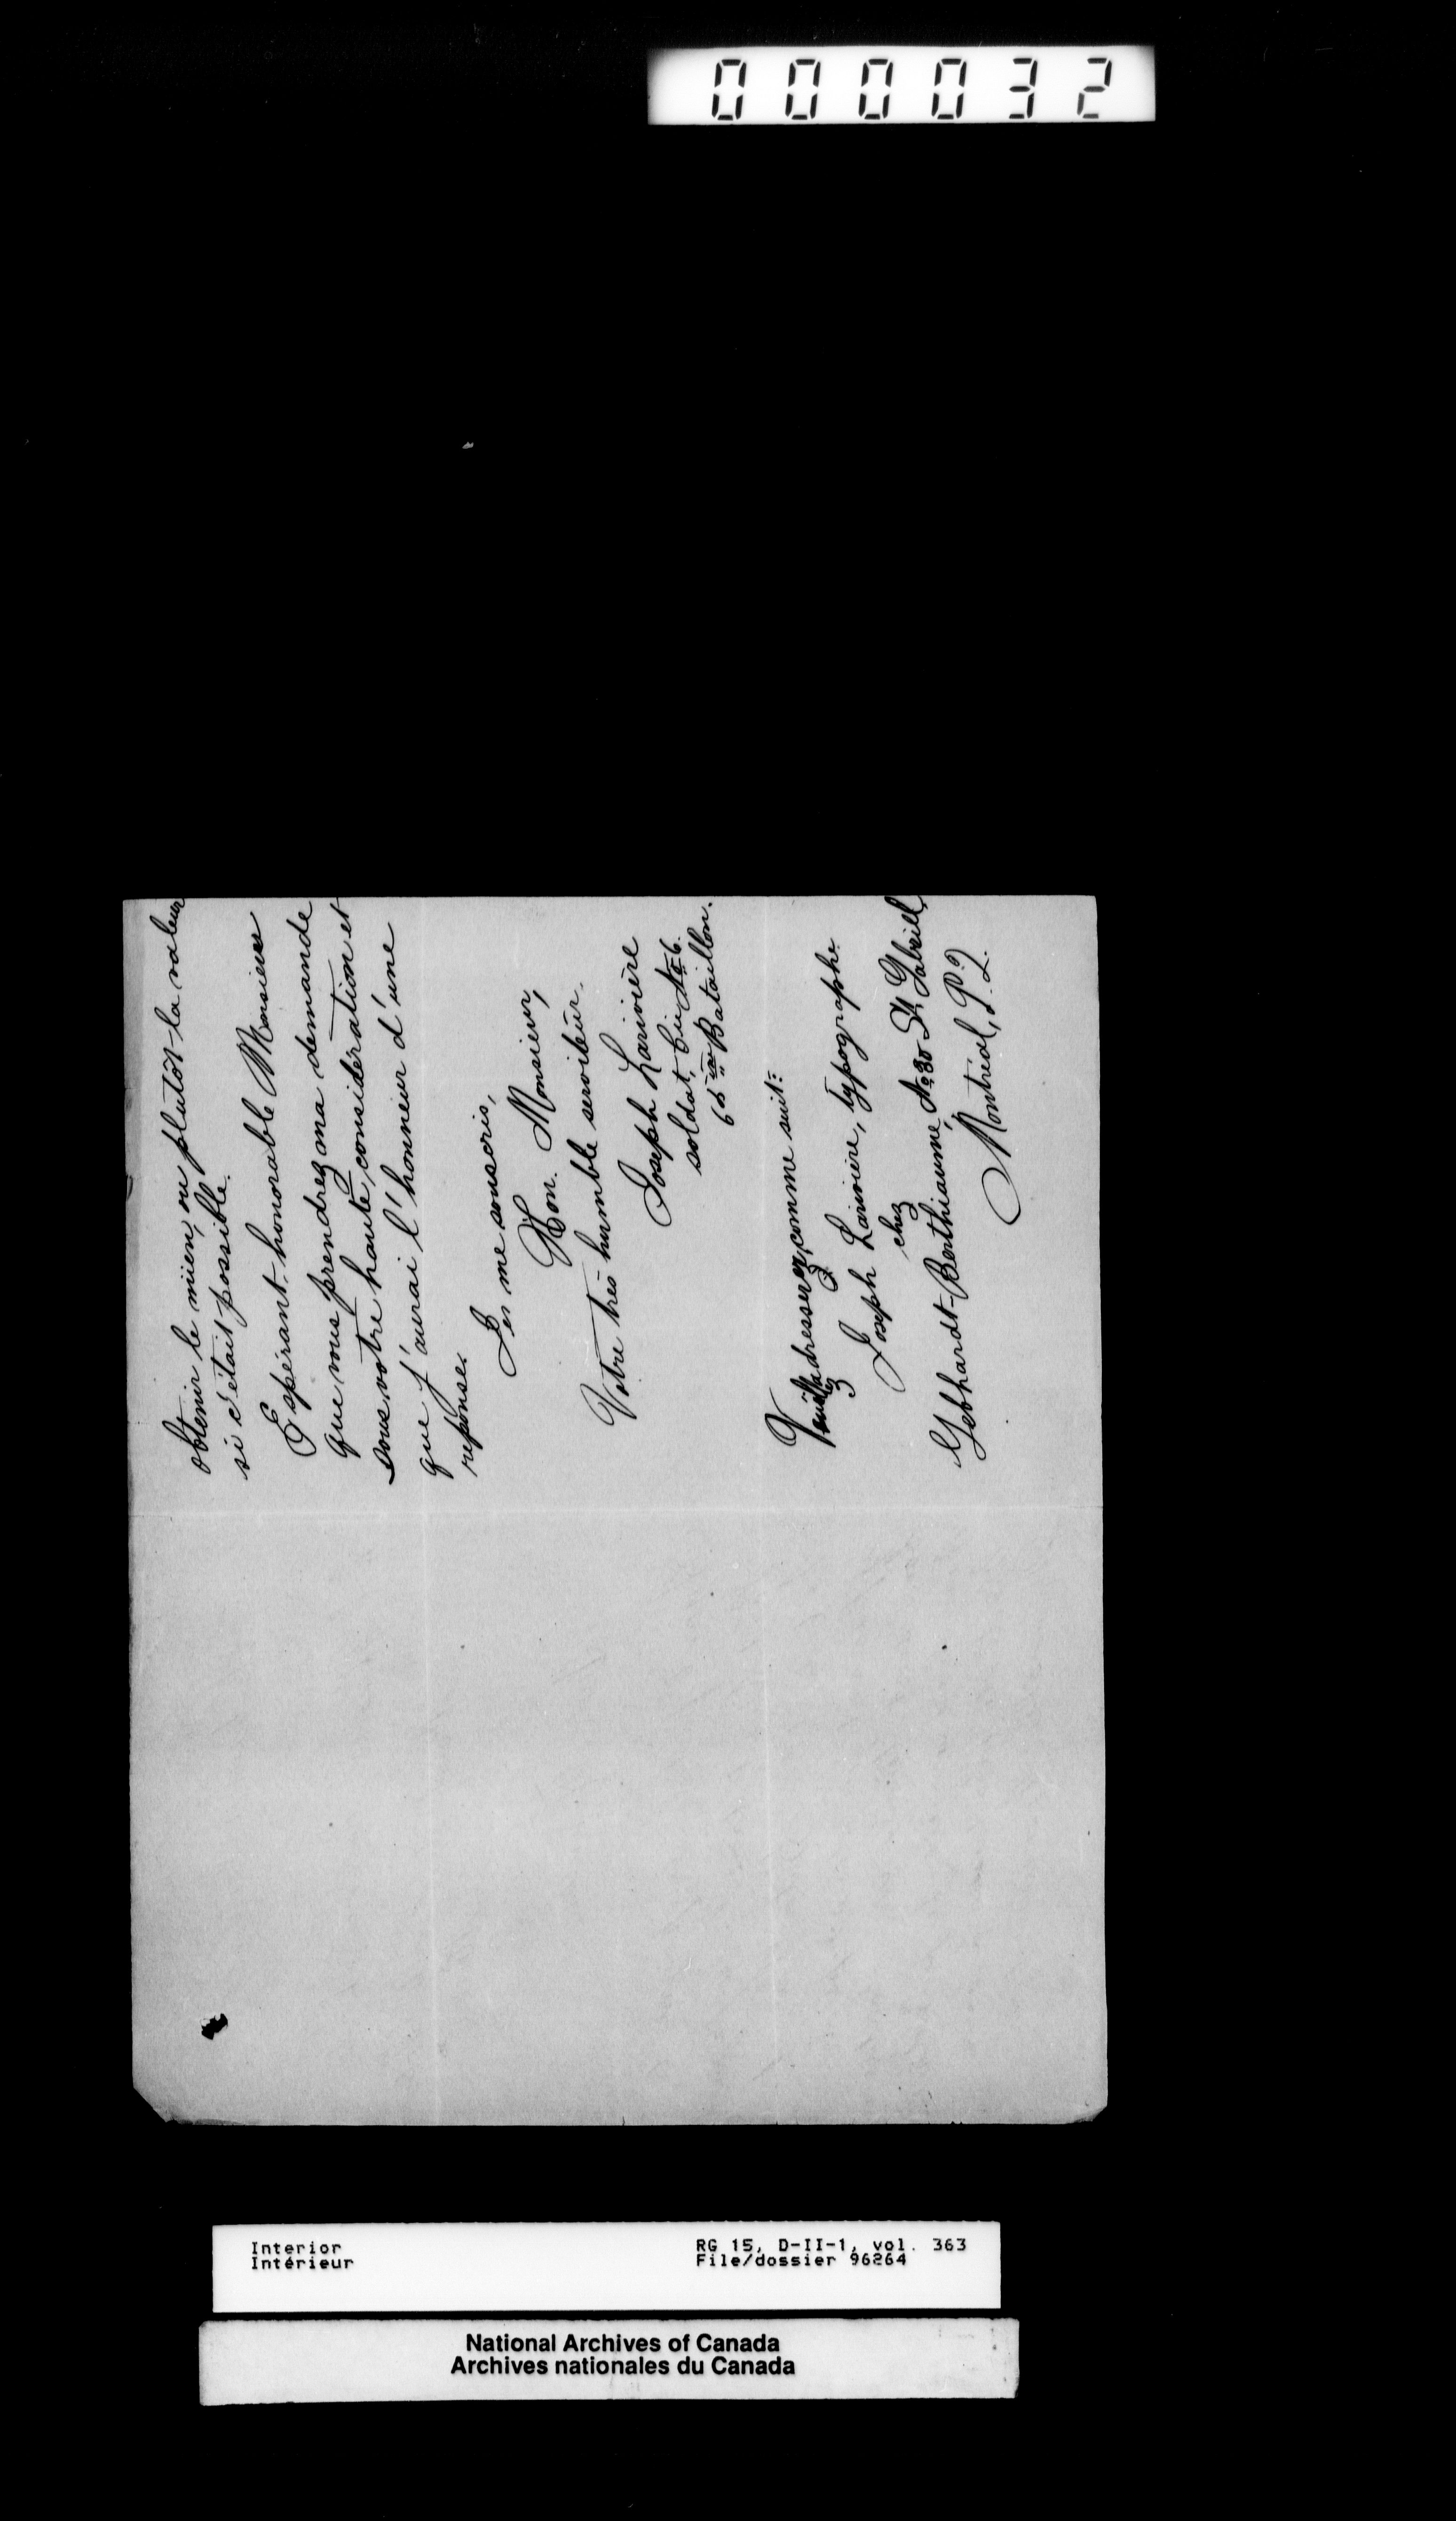 000032
obtenir le mien, ou plutôt la valeur
si c'était possible.
Espérant, honorable Monsieur
que vous prendrez ma demande
sous votre haute considération et
que j'aurai l'honneur d'une
réponse.
Je me souscris,
Hon. Monsieur,
Votre très humble serviteur.
Joseph Larivière
soldat, Cie No 6.
65ième Bataillon.
Veuillez adresser comme suit:
Joseph Larivière, typographe
chez
Gebhardt-Berthiaume, No 30 St Gabriel,
Montréal, P.Q.
Interior
Intérieur
RG 15, D-II-1, vol. 363
File/dossier 96264
National Archives of Canada
Archives nationales du Canada